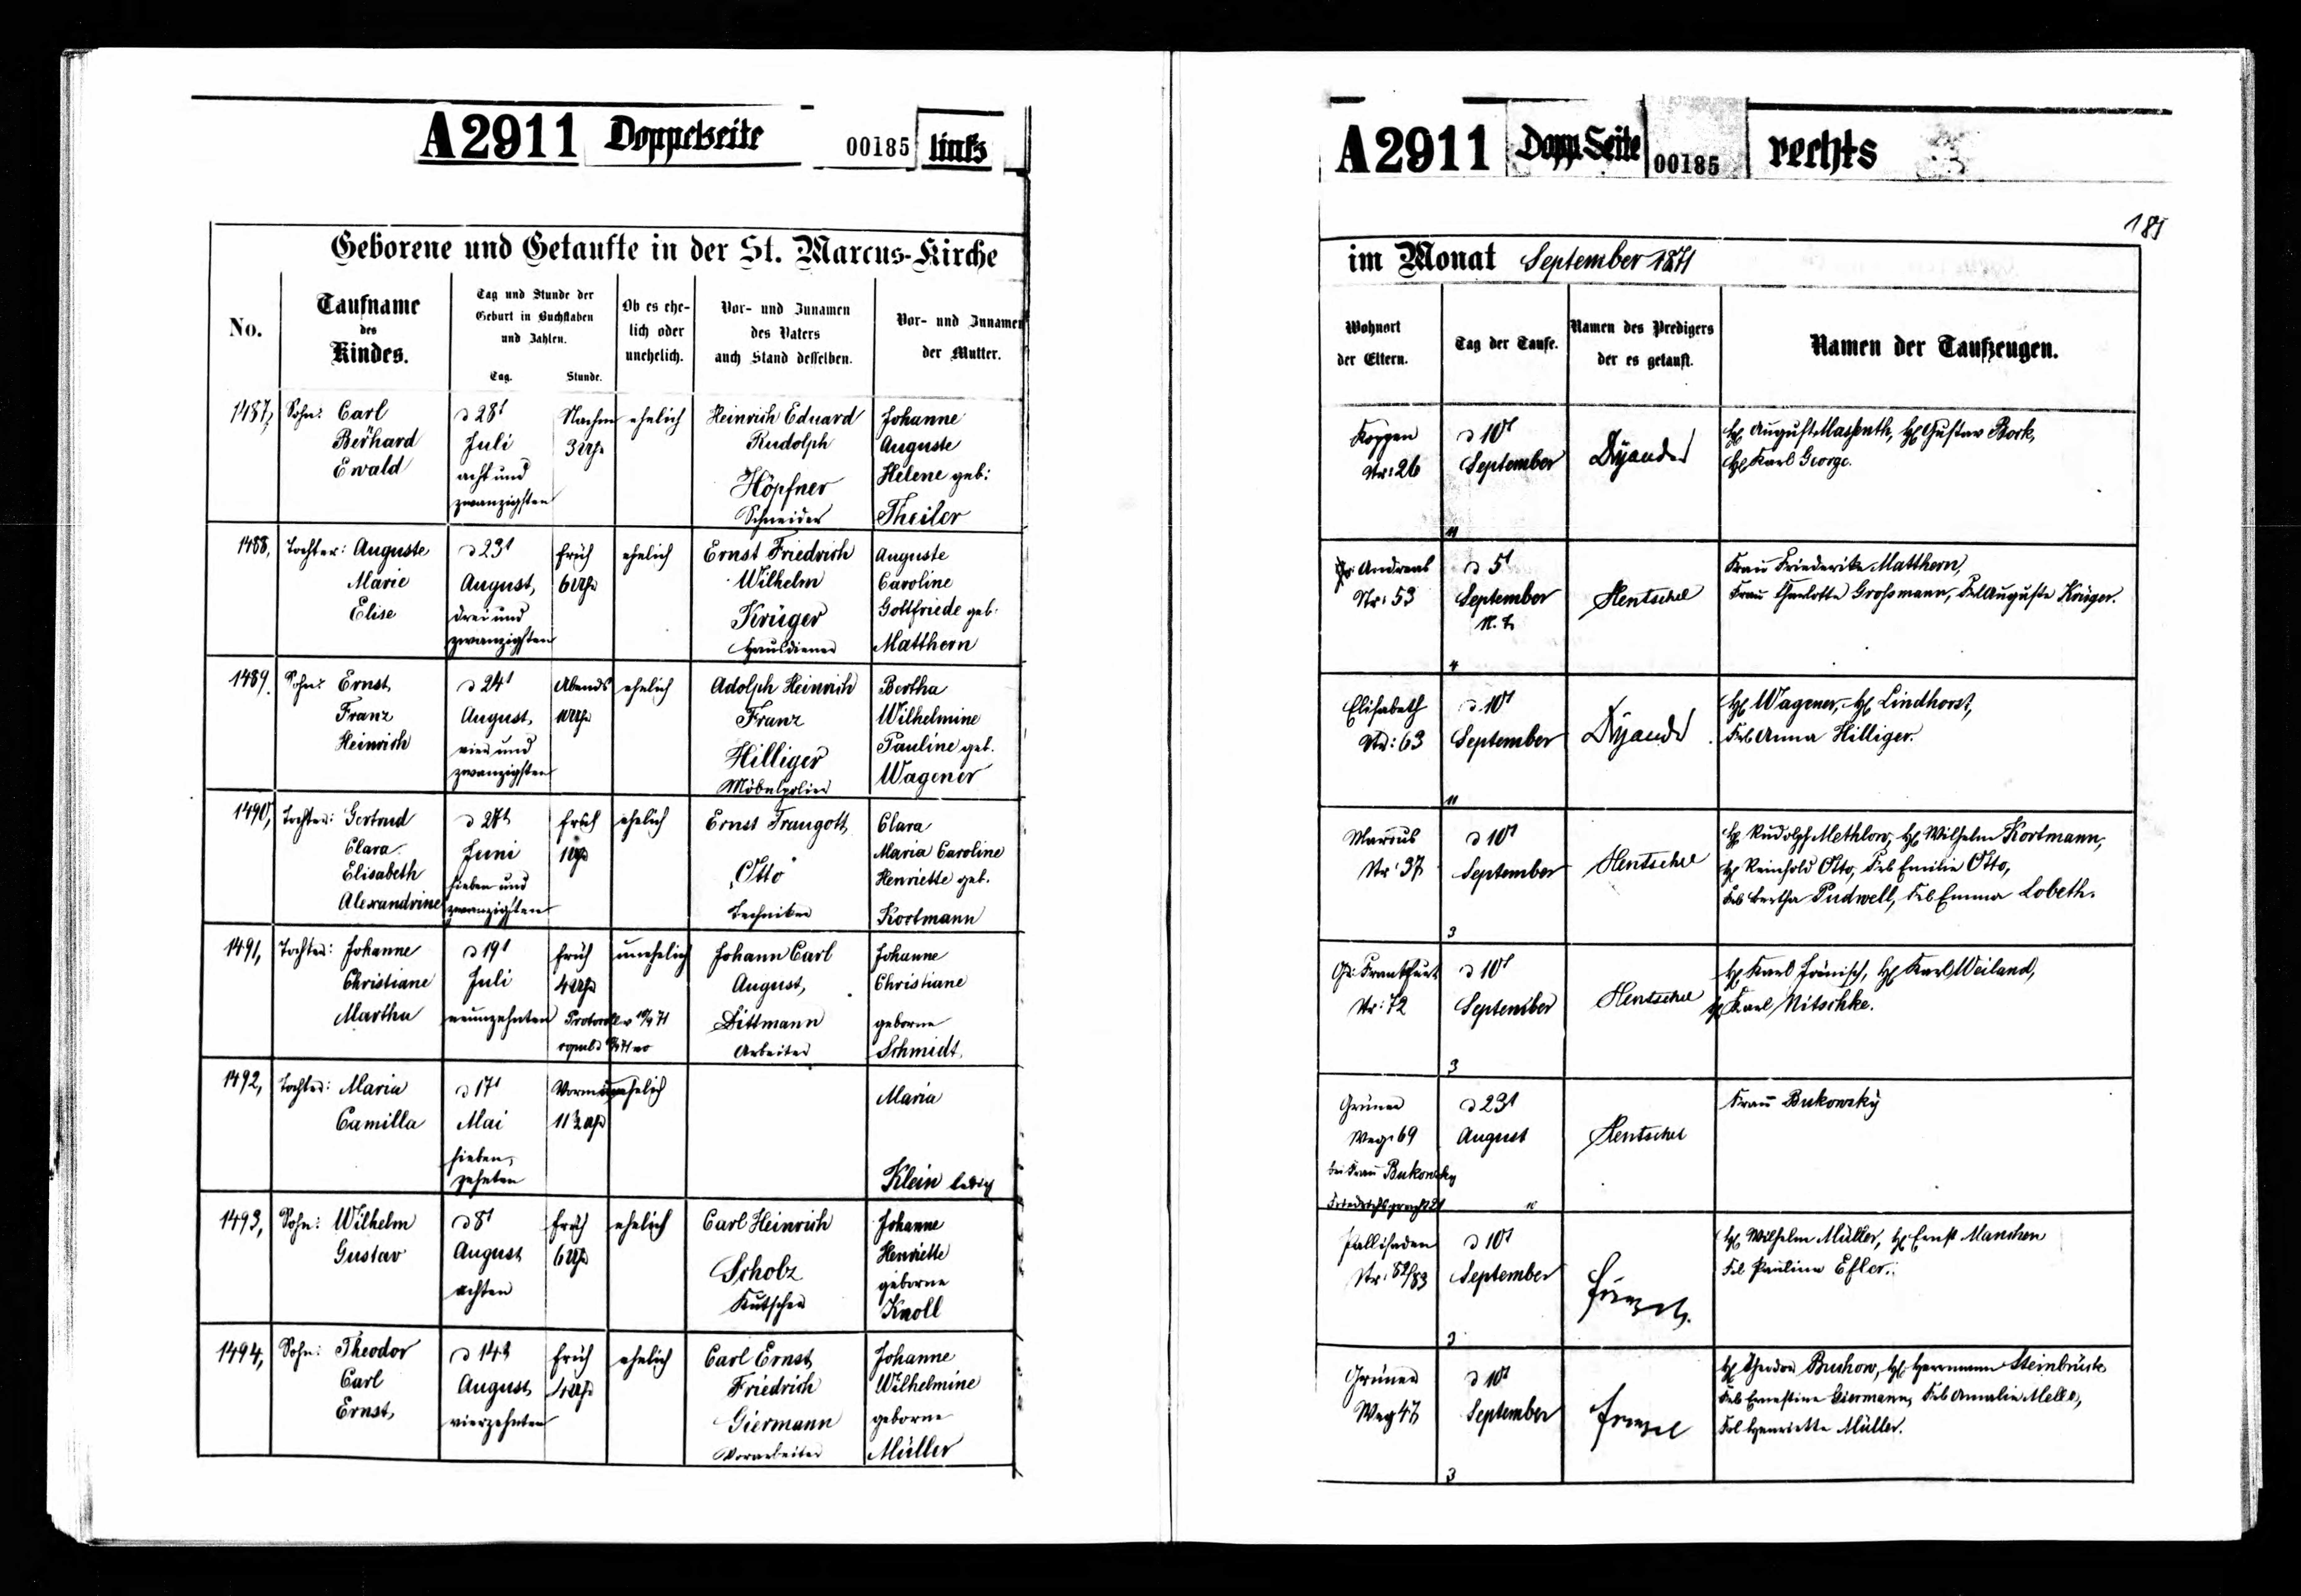 A2911 Doppelseite 00185 links
Geborene und Getaufte in der St. Marcus-Kirche
No.
Taufname
des
Kindes.
Tag und Stunde der
Geburt in Buchstaben
und Zahlen.
Tag. Stunde.
Ob es ehe-
lich oder
unehelich.
Vor- und Zunamen
des Vaters
auch Stand desselben.
Vor- und Zunamen
der Mutter.
1487,
Sohn: Carl
Berhard
Ewald
d 28t
Juli
acht und
zwanzigsten
Nachm
3 Uhr
ehelich
Heinrich Eduard
Rudolph
Höpfner
Schneider
Johanne
Auguste
Helene geb:
Theiler
1488,
Tochter: Auguste
Marie
Elise
d 23t
August,
drei und
zwanzigsten
früh
6 Uhr
ehelich
Ernst Friedrich
Wilhelm
Krüger
Hausdiener
Auguste
Caroline
Gottfriede geb:
Matthern
1489.
Sohn: Ernst
Franz
Heinrich
d 24t
August,
vier und
zwanzigsten
Abends
10 Uhr
ehelich
Adolph Heinrich
Franz
Hilliger
Möbelpolier
Bertha
Wilhelmine
Pauline geb.
Wagener
1490,
Tochter: Gertrud
Clara
Elisabeth
Alexandrine
d 27t
Juni
sieben und
zwanzigsten
früh
1 Uhr
ehelich
Ernst Traugott
Otto
Techniker
Clara
Maria Caroline
Henriette geb.
Kortmann
1491,
Tochter: Johanne
Christiane
Martha
d 19t
Juli
neunzehnten
früh
4 Uhr
Protocoll v
unehelich
Johann Carl
August,
Dittmann
Arbeiter
Johanne
Christiane
geborne
Schmidt.
1492,
Tochter: Maria
Camilla
d 17t
Mai
sieben,
zehnten
Vorm
11½ Uhr
unehelich
Maria
Klein ledig
1493,
Sohn: Wilhelm
Gustav
d 8t
August
achten
früh
6 Uhr
ehelich
Carl Heinrich
Scholz
Kutscher
Johanne
Henriette
geborne
Knoll
1494,
Sohn: Theodor
Carl
Ernst
d 14t
August
vierzehnten
früh
4 Uhr
ehelich
Carl Ernst
Friedrich
Giermann
Vorarbeiter
Johanne
Wilhelmine
geborne
Müller
A2911 Dopp Seite 00185 rechts
185
im Monat September 1871
Wohnort
der Eltern.
Tag der Taufe.
Namen des Predigers
der es getauft.
Namen der Taufzeugen.
Koppen
Str: 26
d 10t
September
11
Hr August Hr Gustav Bork,
Hr Karl George.
Gr: Andreas
Str: 53
d 5t
September
N. T.
4
Hentschel
Frau Friederike Matthern,
Frau Charlotte Grossmann, Frl Auguste Krüger.
Elisabeth
Str: 63
d 10t
September
11
Hr Wagener, Hr Lindhorst,
Frl Anna Hilliger.
Marcus
Str: 37
d 10t
September
3
Hentschel
Hr Rudolph Methlow, Hr Wilhelm Kortmann,
Hr Reinhold Otto, Frl Emilie Otto,
Frl Bertha Pudwell, Frl Emma Lobeth.
Gr: Frankfurt
Str: 72
d 10t
September
3
Hentschel
Hr Karl Jränisch, Hr Karl Weiland,
Hr Karl Nitschke.
Grüner
Weg 69
bei Frau Bukowzky
d 23t
August
Hentschel
Frau Bukowzky
Pallisaden
Str: 82/83
d 10t
September
3
Hr Wilhelm Müller, Hr Ernst Manchen
Frl Pauline Esler.
Grüner
Weg 47
d 10t
September
3
Hr Theodor Buchow, Hr Herrmann Steinbrück
Frl Ernestine Giermann, Frl Amalie Melle,
Frl Henriette Müller.